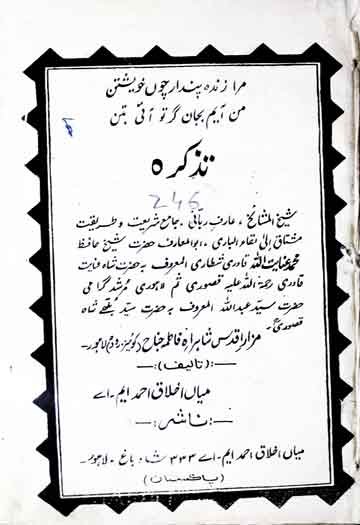 مرا زندہ پندار چوں خویشتن
من آیم بجان گر تو آئی بتن
تذکرہ
246
شیخ المشائخ، عارف ربانی، جامع شریعت و طریقت
مشتاق إلیٰ لقاء الباری، ابو المعارف حضرت شیخ حافظ
محمد عنایت اللہ قادری شطاری المعروف بہ حضرت شاہ عنایت
قادری رحمۃ اللہ علیہ قصوری ثم لاہوری مرشد گرامی
حضرت سید عبداللہ المعروف بہ حضرت سید بلھے شاہ
قصوریؒ۔
مزار اقدس شاہراہ فاطمہ جناح (کوئینز روڈ) لاہور۔
:(تالیف):
میاں اخلاق احمد ایم۔اے
:ناشر:
میاں اخلاق احمد ایم۔اے ۳۳۳ شاد باغ۔ لاہور۔
(پاکستان)